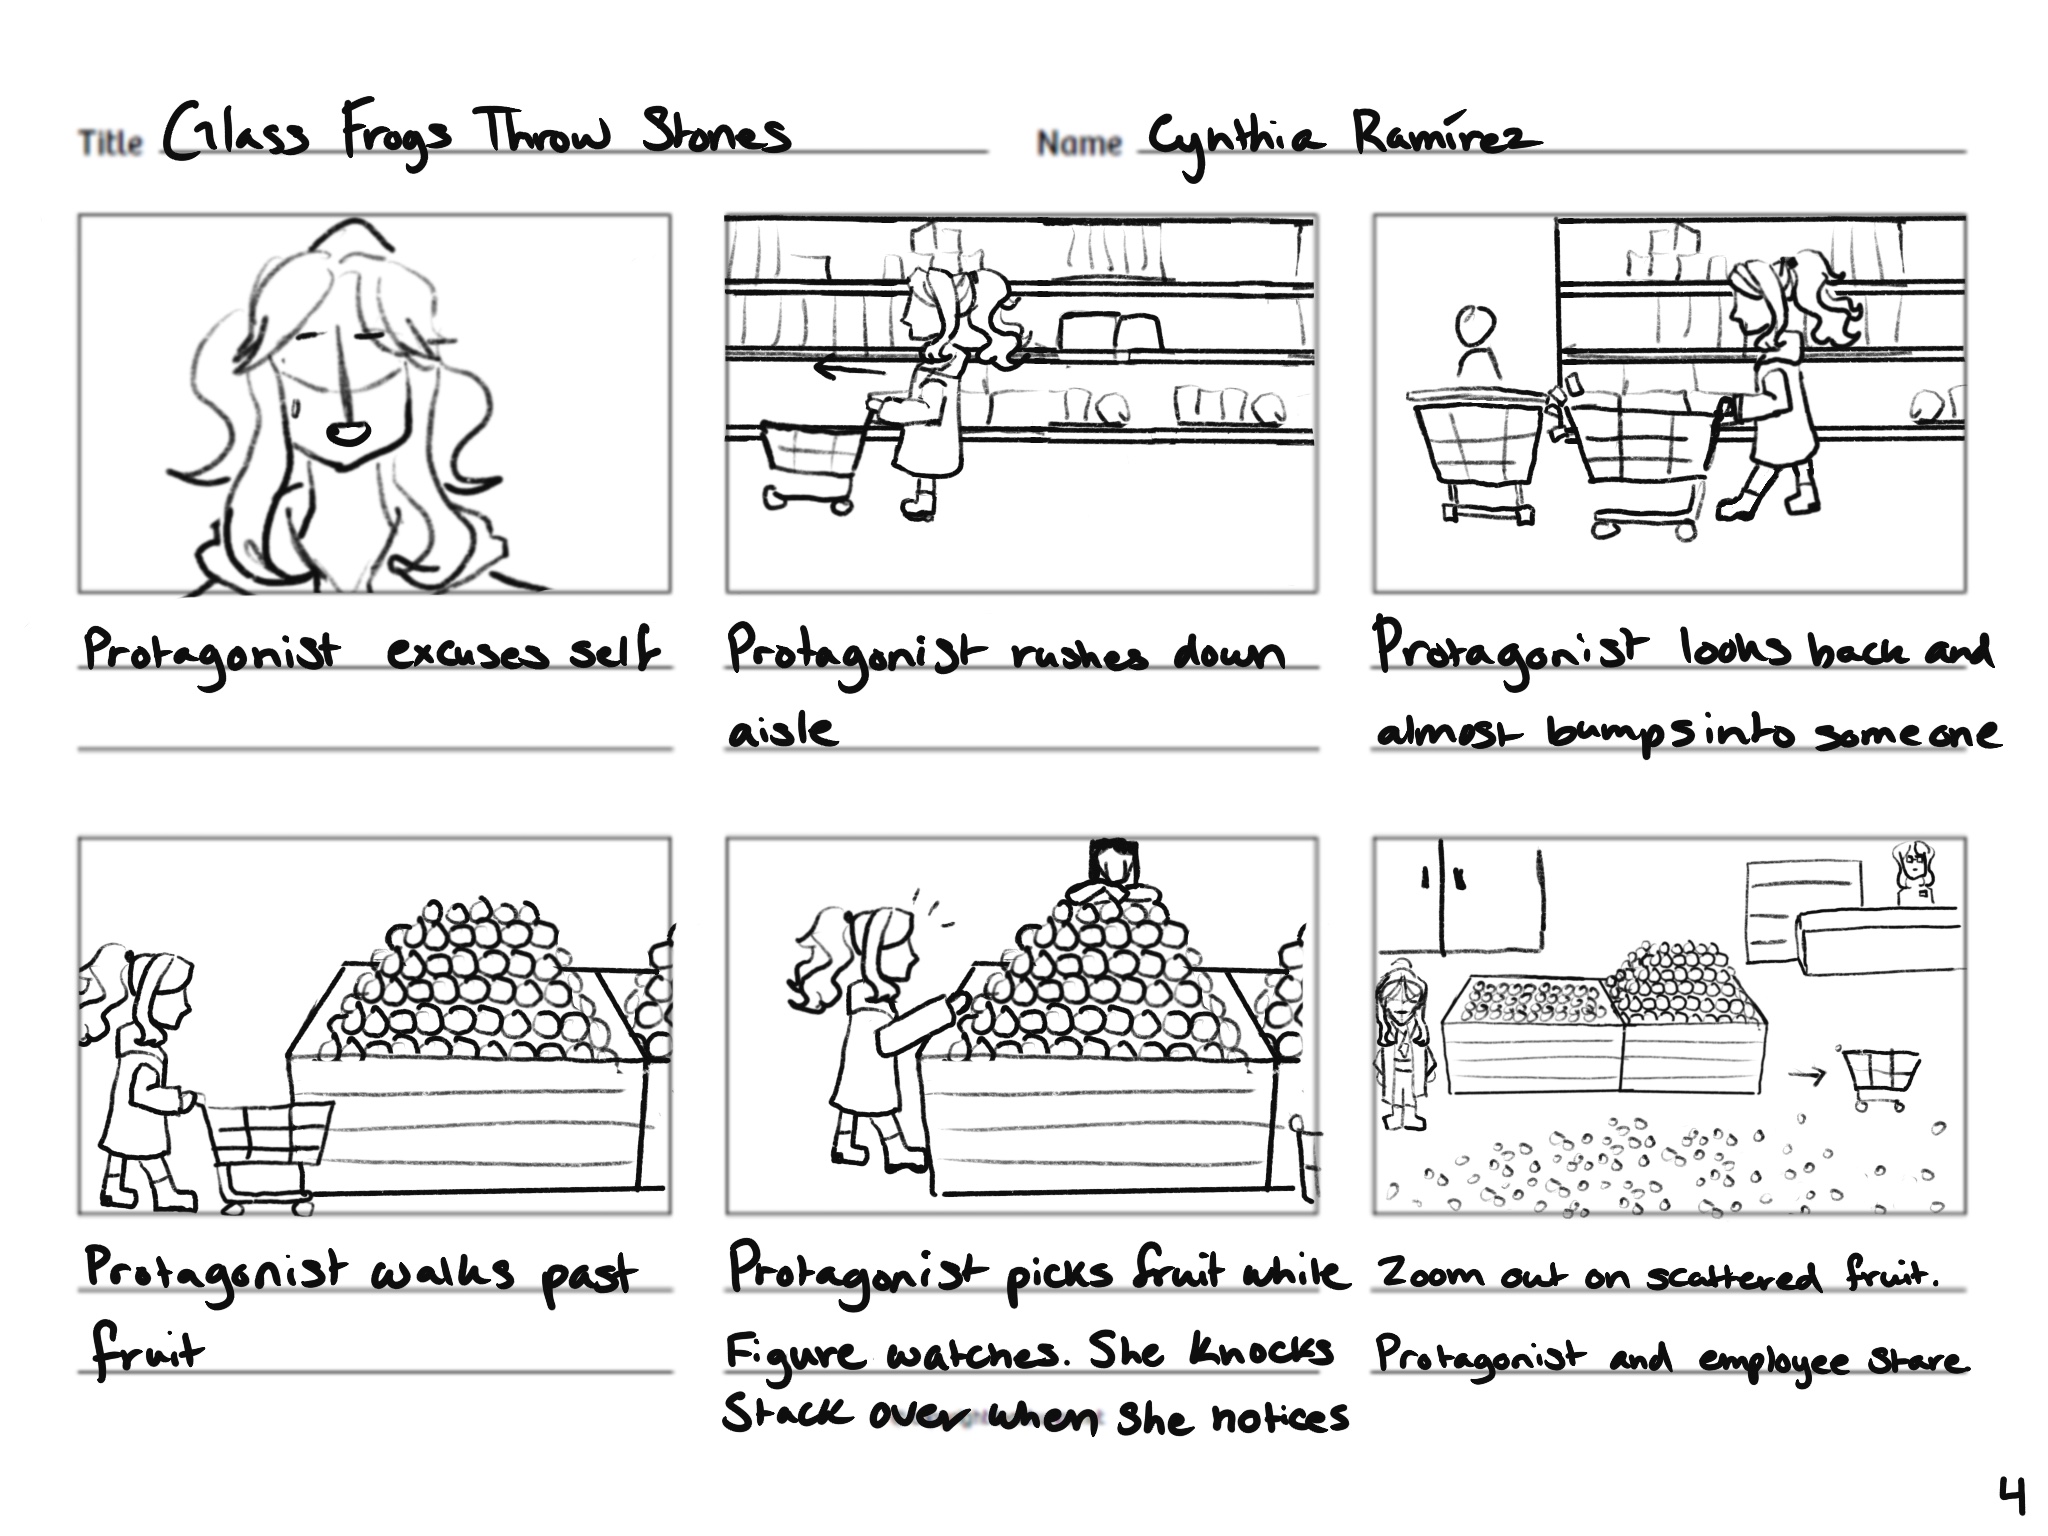 Title Glass Frogs Throw Stones
Name Cynthia Ramírez
Protagonist excuses self
Protagonist rushes down
aisle
Protagonist looks back and
almost bumps into someone
Protagonist walks past
fruit
Protagonist picks fruit while
Figure watches. She knocks
Stack over when she notices
Zoom out on scattered fruit.
Protagonist and employee stare
4